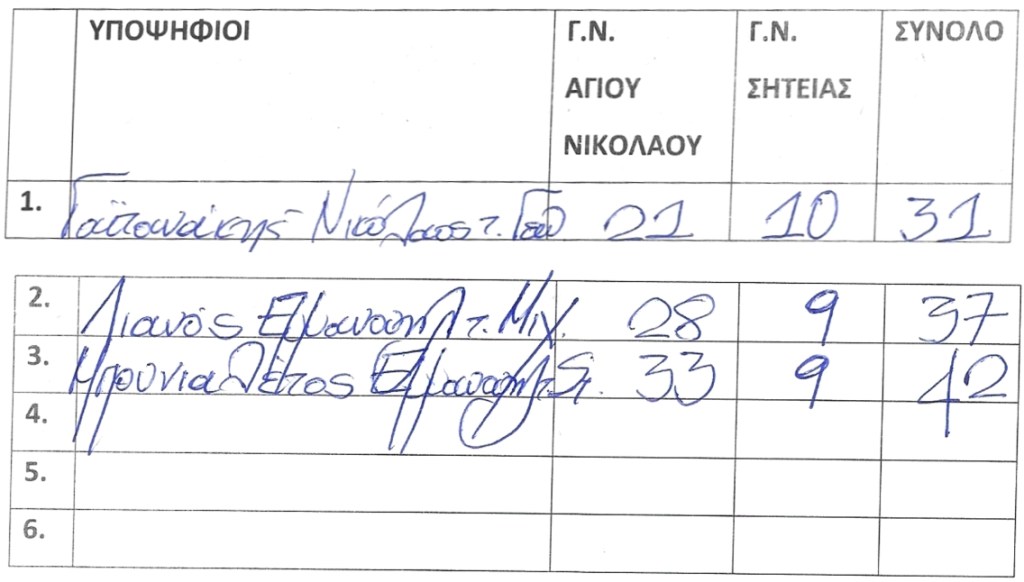 ΥΠΟΨΗΦΙΟΙ Γ.Ν. ΑΓΙΟΥ ΝΙΚΟΛΑΟΥ Γ.Ν. ΣΗΤΕΙΑΣ ΣΥΝΟΛΟ
1. Γαϊτανάκης Νικόλαος τ. 21 10 31
2. Λιανός Εμμανουήλ τ. Μιχ. 28 9 37
3. Μπρουνιαλέτος Εμμανουήλ τ. Στ. 33 9 42
4.
5.
6.